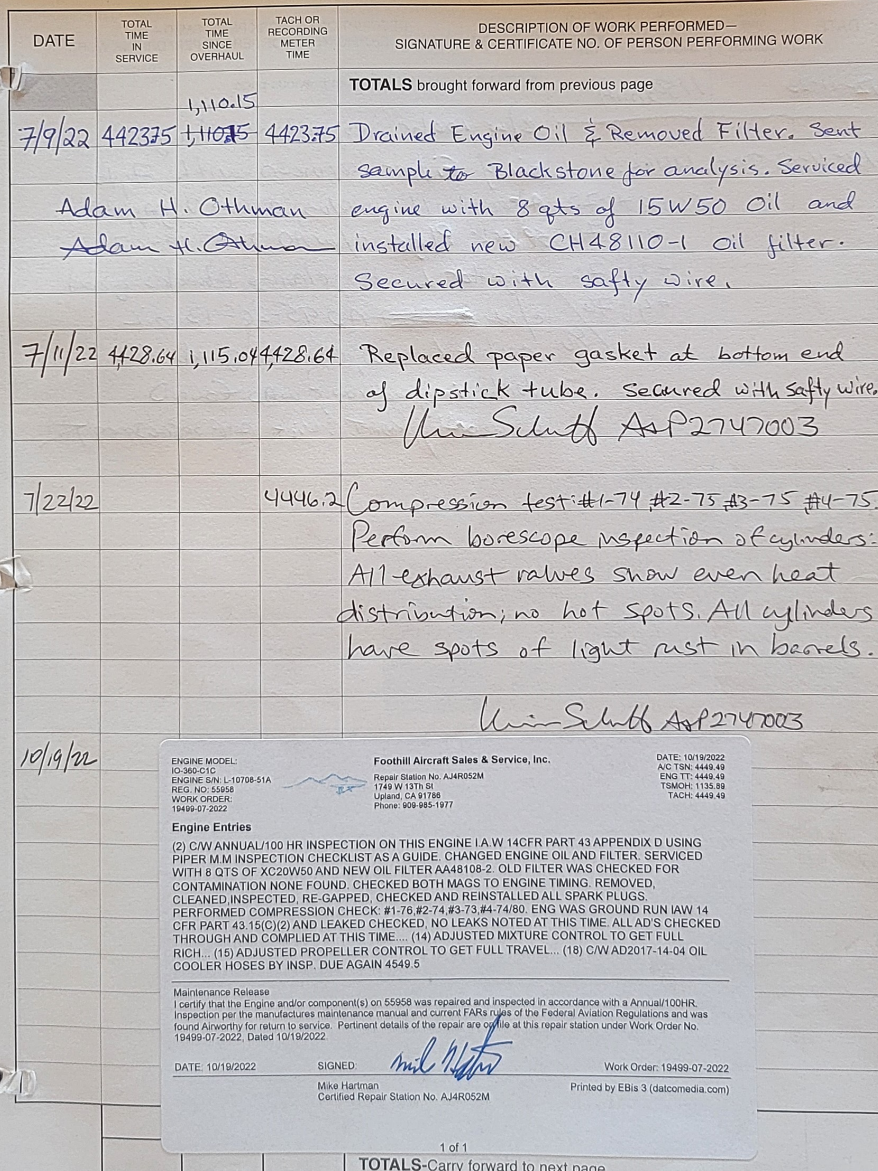 DATE
TOTAL TIME IN SERVICE
TOTAL TIME SINCE OVERHAUL
TACH OR RECORDING METER TIME
DESCRIPTION OF WORK PERFORMED—
SIGNATURE & CERTIFICATE NO. OF PERSON PERFORMING WORK
TOTALS brought forward from previous page
1,110.15
7/9/22 4423.75 4423.75 Drained Engine Oil & Removed Filter. Sent
sample to Blackstone for analysis. Serviced
Adam H. Othman engine with 8 qts of 15W50 Oil and
Adam H. Othman installed new CH48110-1 Oil filter.
Secured with safty wire.
7/11/22 4,428.64 1,115.04 4,428.64 Replaced paper gasket at bottom end
of dipstick tube. Secured with safty wire.
A&P2747003
7/22/22 4446.2 Compression test: #1-74 #2-75 #3-75 #4-75.
Perform borescope inspection of cylinders:
All exhaust valves show even heat
distribution; no hot spots. All cylinders
have spots of light rust in barrels.
A&P2747003
10/19/22
ENGINE MODEL:
IO-360-C1C
ENGINE S/N: L-10708-51A
REG. NO: 55958
WORK ORDER:
19499-07-2022
Foothill Aircraft Sales & Service, Inc.
Repair Station No. AJ4R052M
1749 W 13Th St
Upland, CA 91786
Phone: 909-985-1977
DATE: 10/19/2022
A/C TSN: 4449.49
ENG TT: 4449.49
TSMOH: 1135.89
TACH: 4449.49
Engine Entries
(2) C/W ANNUAL/100 HR INSPECTION ON THIS ENGINE I.A.W 14CFR PART 43 APPENDIX D USING
PIPER M.M INSPECTION CHECKLIST AS A GUIDE. CHANGED ENGINE OIL AND FILTER. SERVICED
WITH 8 QTS OF XC20W50 AND NEW OIL FILTER AA48108-2. OLD FILTER WAS CHECKED FOR
CONTAMINATION NONE FOUND. CHECKED BOTH MAGS TO ENGINE TIMING. REMOVED,
CLEANED,INSPECTED, RE-GAPPED, CHECKED AND REINSTALLED ALL SPARK PLUGS.
PERFORMED COMPRESSION CHECK: #1-76,#2-74,#3-73,#4-74/80. ENG WAS GROUND RUN IAW 14
CFR PART 43.15(C)(2) AND LEAKED CHECKED, NO LEAKS NOTED AT THIS TIME. ALL AD'S CHECKED
THROUGH AND COMPLIED AT THIS TIME.... (14) ADJUSTED MIXTURE CONTROL TO GET FULL
RICH... (15) ADJUSTED PROPELLER CONTROL TO GET FULL TRAVEL... (18) C/W AD2017-14-04 OIL
COOLER HOSES BY INSP. DUE AGAIN 4549.5
Maintenance Release
I certify that the Engine and/or component(s) on 55958 was repaired and inspected in accordance with a Annual/100HR.
Inspection per the manufactures maintenance manual and current FARs rules of the Federal Aviation Regulations and was
found Airworthy for return to service. Pertinent details of the repair are on file at this repair station under Work Order No.
19499-07-2022, Dated 10/19/2022
DATE: 10/19/2022 SIGNED: Work Order: 19499-07-2022
Mike Hartman Printed by EBis 3 (datcomedia.com)
Certified Repair Station No. AJ4R052M
1 of 1
TOTALS-Carry forward to next page